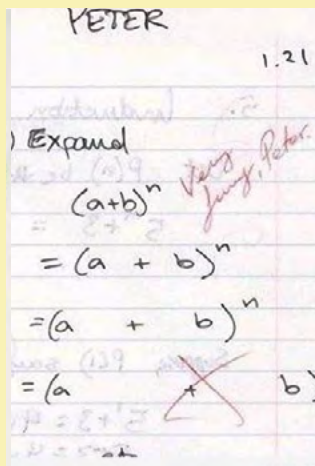 PETER
1.21
) Expand
Very
funny, Peter.
(a+b)^n
= (a + b)^n
= (a + b)^n
= (a + b)